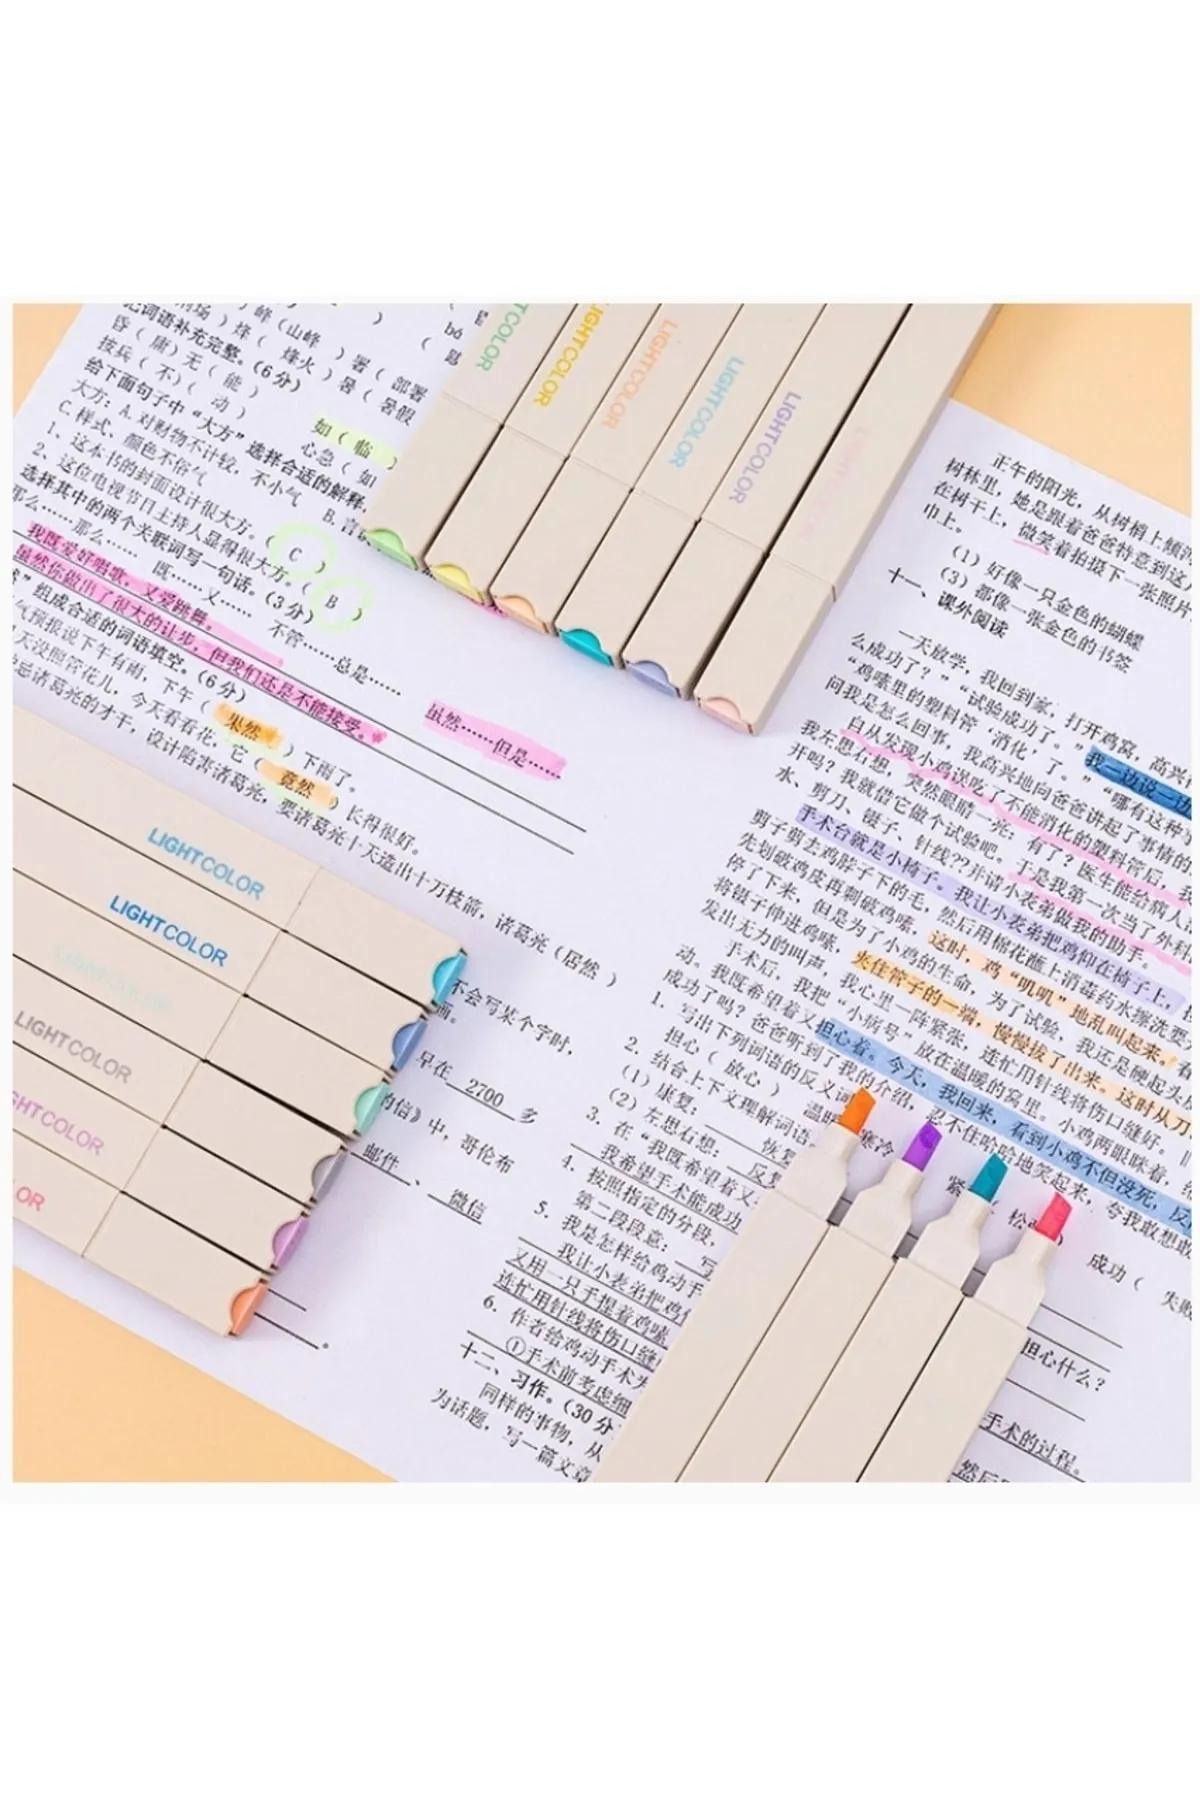 昏（庸）无（能
把词语补充完整。（6分）
给下面句子中“大方”选择合适的解释
大方：A.对财物不计较，不小气 B.
C.样式、颜色不俗气
1、这本书的封面设计很大方。（C）
2、这位电视节目主持人显得很大方。（B）
选择其中的两个关联词写一句话。（3分）
那么…… 既……又…… 不管……总是……
虽然……但是……
我既爱好唱歌，又爱跳舞。
虽然你做出了很大的让步，但我们还是不能接受。
组成合适的词语填空。（6分）
气预报说下午有雨，下午（果然）下雨了。
天没照管花儿，今天看看花，它（竟然）长得很好。
忌诸葛亮的才干，设计陷害诸葛亮，要诸葛亮十天造出十万枝箭，诸葛亮（居然）
如（临）
心急（如
LIGHTCOLOR
LIGHTCOLOR
LIGHTCOLOR
LIGHTCOLOR
LIGHTCOLOR
LIGHTCOLOR
LIGHTCOLOR
LIGHTCOLOR
LIGHTCOLOR
LIGHTCOLOR
HTCOLOR
OR
不会写某个字时，
早在 2700 多
的信》中，哥伦布
邮件、微信
正午的阳光，从树梢上倾
树林里，她是跟着爸爸特意到这
在树干上，微笑着拍摄下一张照片
巾上。
（1）好像一只金色的蝴蝶
（3）都像一张金色的书签
十一、课外阅读
一天放学，我回到家，打开鸡窝，高兴
么成功了？”“试验成功了。”
“鸡嗉里的塑料管‘消化’了。”“哪有这种事
问我是怎么回事，我高兴地向爸爸讲起了事情的
我一边说一边
自从发现小鸡误吃了不能消化的塑料管后，我
我左思右想，突然眼睛一亮：有了？医生能给病人
开吗？我就借它做个试验吧。于是我第一次当了外科
水、剪刀、镊子、针线??并请小表弟做我的助手。
手术台就是小椅子。我让小表弟把鸡仰在椅子上，
剪子剪去鸡脖子下的毛，然后用棉花蘸上消毒药水擦洗
先划破鸡皮再刺破鸡嗉，这时，鸡“叽叽”地乱叫起来。
停了下来，但是为了小鸡的生命，为了试验，我还是硬起头
将镊子伸进鸡嗉，夹住管子的一端，慢慢拔了出来。这时从刀
发出无力的叫声，我心里一阵紧张，连忙用针线将伤口缝好。
手术后，我把“小病号”放在温暖的窝里。小鸡两眼眯着，
动。我既希望着又担心着。今天，我回来，看到小鸡不但没死，反
成功了吗？爸爸听到了我的介绍，忍不住哈哈地笑起来，夸我敢想敢
1．写出下列词语的反义词
担心（放心） 寒冷
成功（失败
2．结合上下文理解词语
（1）康复：恢复
（2）左思右想：反复
3．在“我既希望着又
我希望手术能成功
4．按照指定的分段，
第二段段意：
5．我是怎样给鸡动手
我让小表弟把鸡
又用一只手捏着鸡嗉
连忙用针线将伤口缝
担心什么？
6．作者给鸡动手术
①手术前考虑细
手术的过程。
十二、习作。（30分
同样的事物，从
为话题，写一篇文章